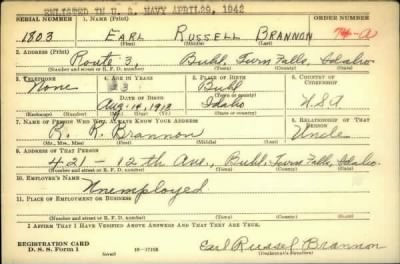 ENLISTED IN U. S. NAVY APRIL 29, 1942
SERIAL NUMBER 1. NAME (Print) ORDER NUMBER
1803 EARL RUSSELL BRANNON
(First) (Middle) (Last)
2. ADDRESS (Print)
Route 3, Buhl, Twin Falls, Idaho
(Number and street or R. F. D. number) (Town) (County) (State)
3. TELEPHONE 4. AGE IN YEARS 5. PLACE OF BIRTH 6. COUNTRY OF CITIZENSHIP
None 23 Buhl
DATE OF BIRTH (Town or county)
Aug. 14, 1918 Idaho U.S.A
(Exchange) (Number) (Mo.) (Day) (Yr.) (State or country)
7. NAME OF PERSON WHO WILL ALWAYS KNOW YOUR ADDRESS 8. RELATIONSHIP OF THAT PERSON
R. R. Brannon Uncle
(Mr., Mrs., Miss) (First) (Middle) (Last)
9. ADDRESS OF THAT PERSON
421 - 12th Ave., Buhl, Twin Falls, Idaho.
(Number and street or R. F. D. number) (Town) (County) (State)
10. EMPLOYER'S NAME
Unemployed
11. PLACE OF EMPLOYMENT OR BUSINESS
(Number and street or R. F. D. number) (Town) (County) (State)
I AFFIRM THAT I HAVE VERIFIED ABOVE ANSWERS AND THAT THEY ARE TRUE.
REGISTRATION CARD
D. S. S. Form 1 16-17105 Earl Russel Brannon
(Registrant's Signature)